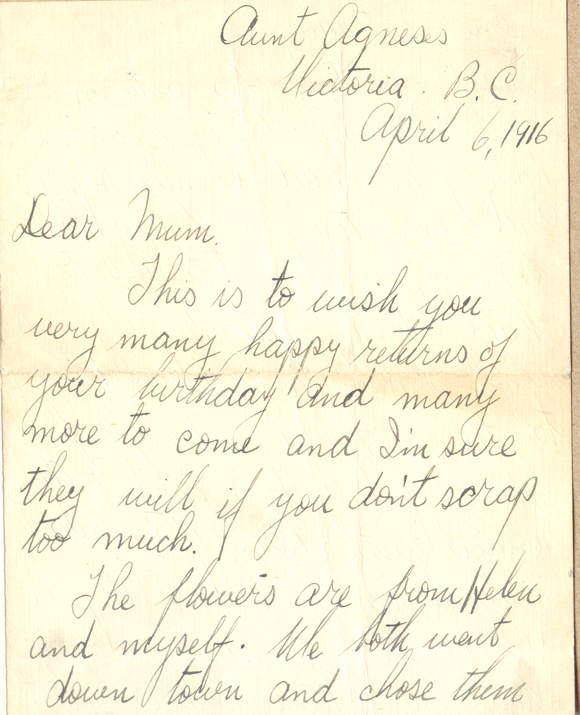 Aunt Agneses
Victoria. B.C.
April 6, 1916
Dear Mum.
This is to wish you
very many happy returns of
your birthday and many
more to come and I'm sure
they will if you don't scrap
too much.
The flowers are from Helen
and myself. We both went
down town and chose them